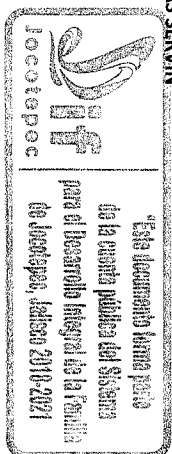 dif
Jocotepec
"Este documento forma parte
de la cuenta pública del Sistema
para el Desarrollo Integral de la Familia
de Jocotepec, Jalisco 2018-2021